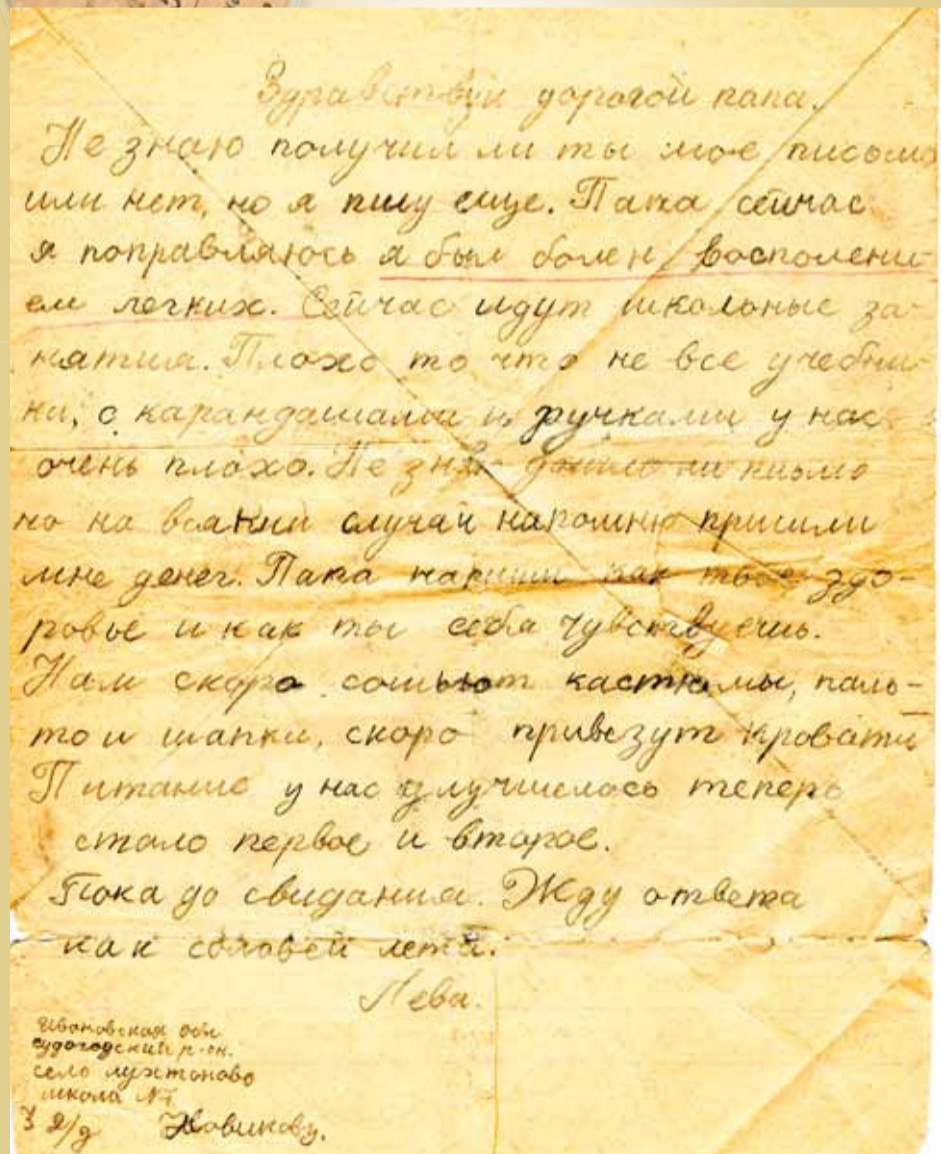 Здравствуй дорогой папа.
Не знаю получил ли ты мое письмо
или нет, но я пишу еще. Папа сейчас
я поправляюсь я был болен восполени-
ем легких. Сейчас идут школьные за-
нятия. Плохо то что не все учебни-
ки, с карандашами и ручками у нас
очень плохо. Не знаю дошло ли письмо
но на всякий случай напомню пришли
мне денег. Папа напиши как твое здо-
ровье и как ты себя чувствуешь.
Нам скоро сошьют кастюмы, паль-
то и шапки, скоро привезут кровати
Питание у нас улучшелось теперь
стало первое и второе.
Пока до свидания. Жду ответа
как соловей лета.
Лева.
Ивановская обл
судогодский р-он.
село лухтоново
школа №
3 д/д Новикову.